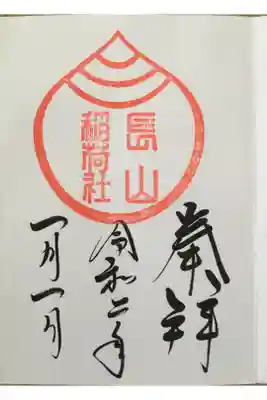 奉拝
長山
稲荷社
令和二年
一月一日